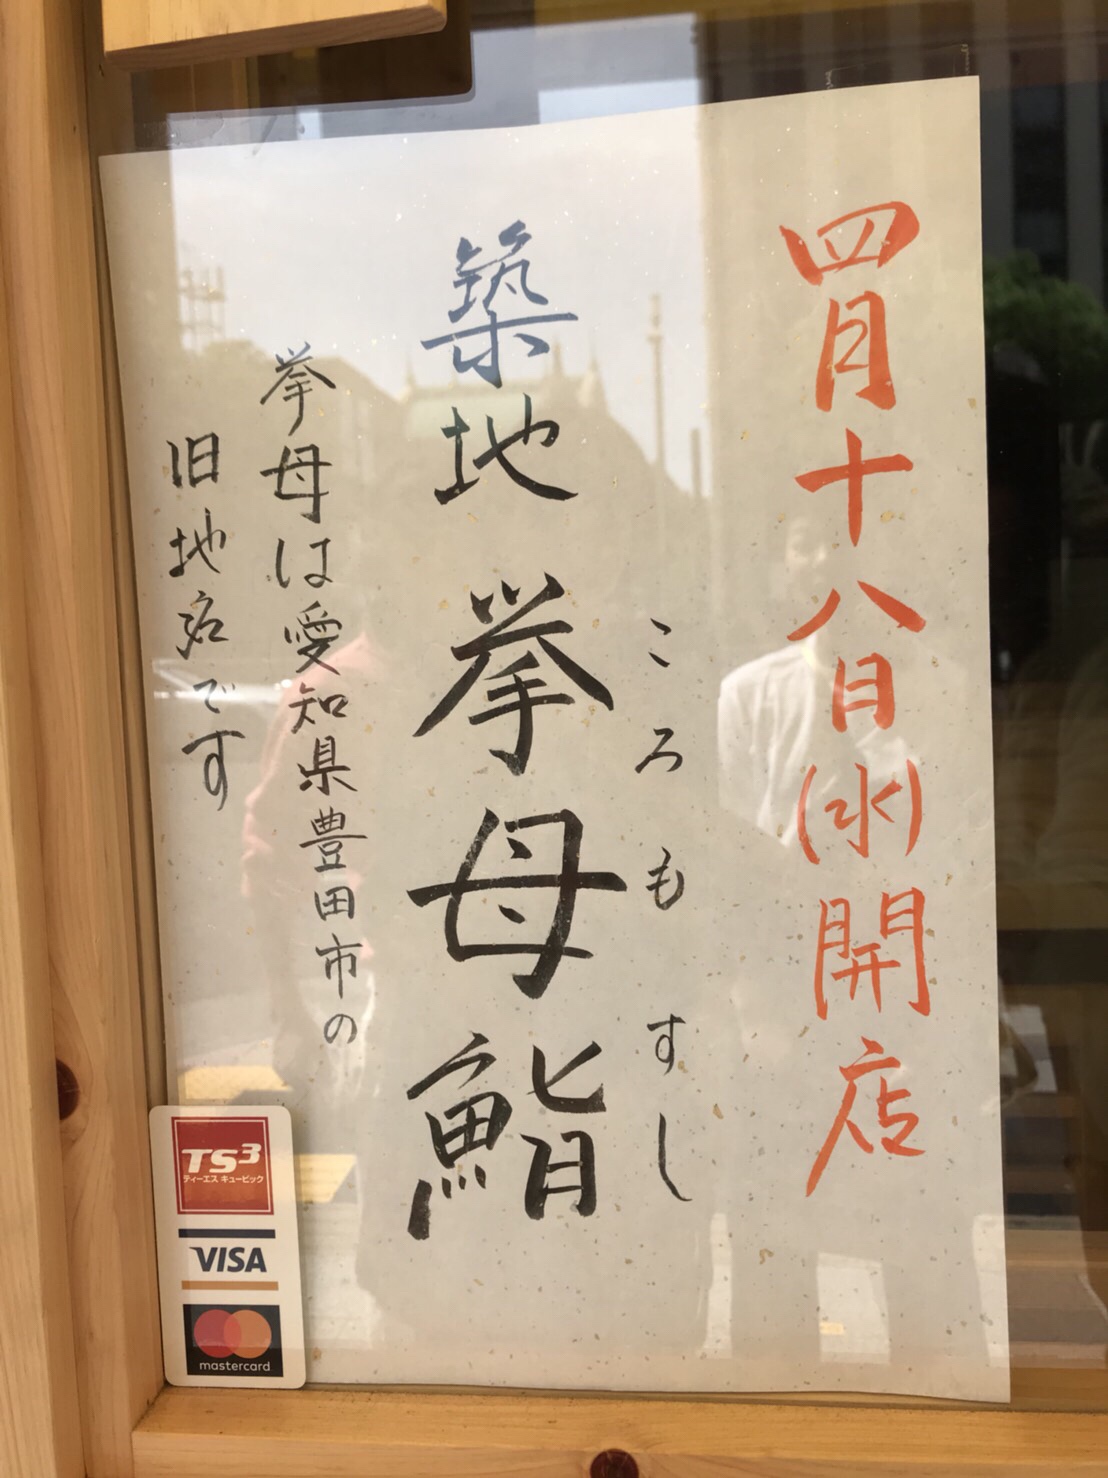 四月十八日(水)開店
ころもすし
築地挙母鮨
挙母は愛知県豊田市の
旧地名です
TS3
ティーエス キュービック
VISA
mastercard